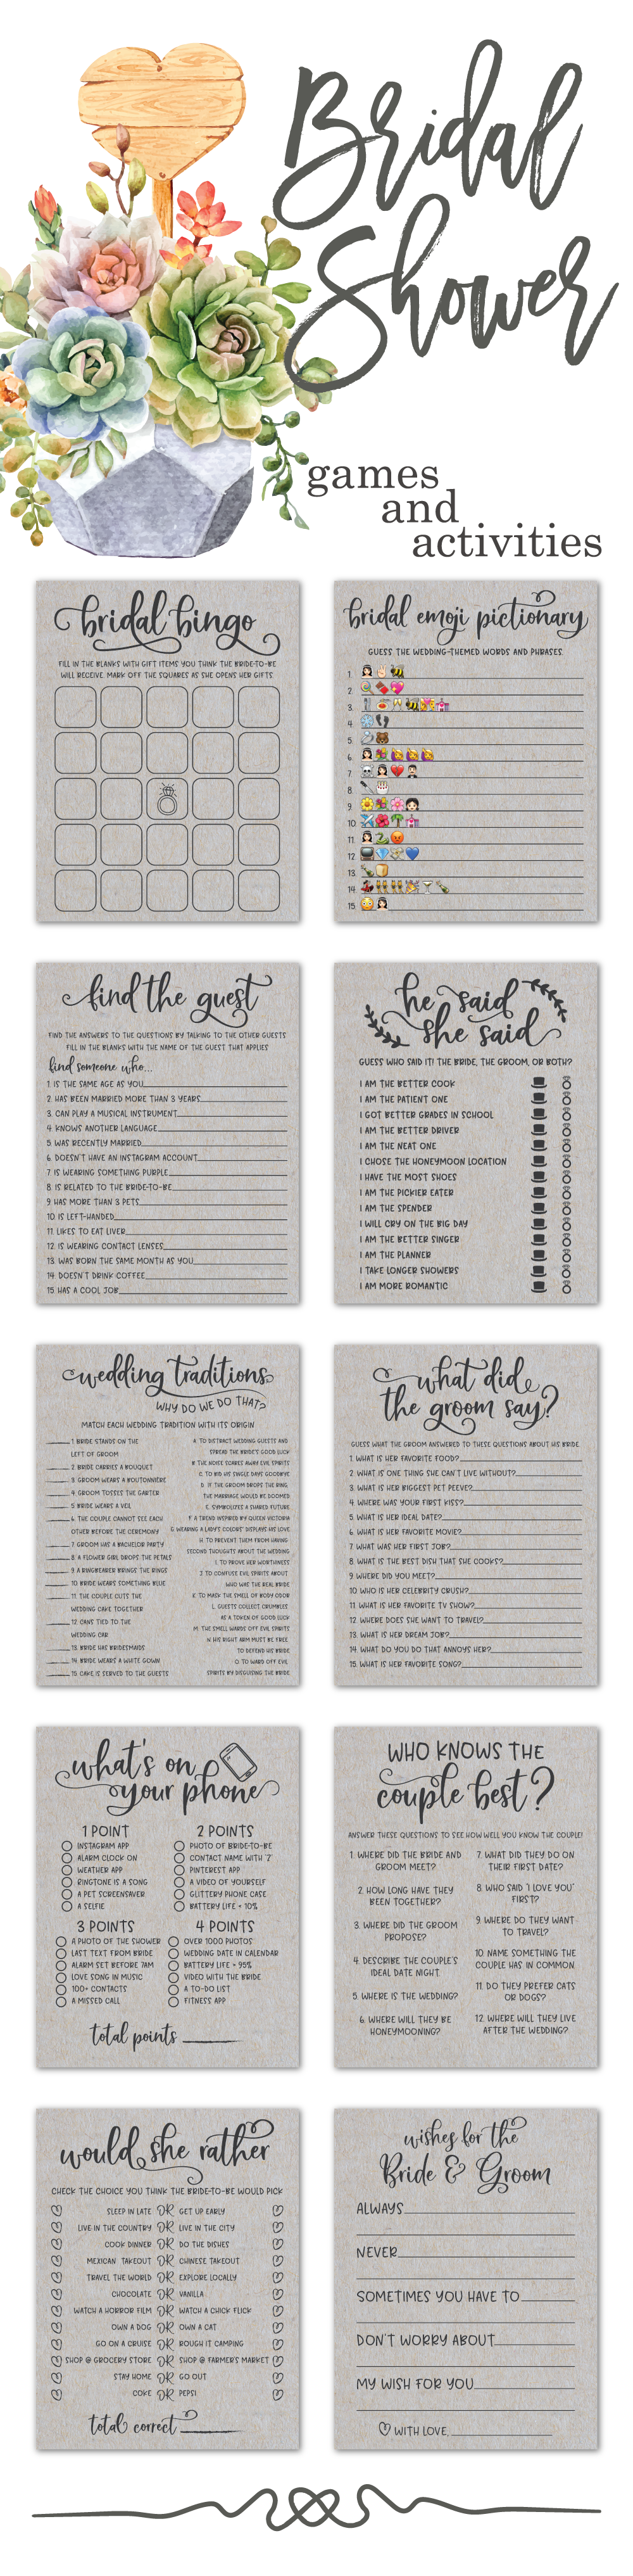 Bridal
Shower
games
and
activities
bridal bingo
FILL IN THE BLANKS WITH GIFT ITEMS YOU THINK THE BRIDE-TO-BE
WILL RECEIVE. MARK OFF THE SQUARES AS SHE OPENS HER GIFTS.
bridal emoji pictionary
GUESS THE WEDDING-THEMED WORDS AND PHRASES.
1.
2.
3.
4.
5.
6.
7.
8.
9.
10.
11.
12.
13.
14.
15.
find the guest
FIND THE ANSWERS TO THE QUESTIONS BY TALKING TO THE OTHER GUESTS
FILL IN THE BLANKS WITH THE NAME OF THE GUEST THAT APPLIES
find someone who...
1. IS THE SAME AGE AS YOU
2. HAS BEEN MARRIED MORE THAN 3 YEARS
3. CAN PLAY A MUSICAL INSTRUMENT
4. KNOWS ANOTHER LANGUAGE
5. WAS RECENTLY MARRIED
6. DOESN'T HAVE AN INSTAGRAM ACCOUNT
7. IS WEARING SOMETHING PURPLE
8. IS RELATED TO THE BRIDE-TO-BE
9. HAS MORE THAN 3 PETS
10. IS LEFT-HANDED
11. LIKES TO EAT LIVER
12. IS WEARING CONTACT LENSES
13. WAS BORN THE SAME MONTH AS YOU
14. DOESN'T DRINK COFFEE
15. HAS A COOL JOB
he said
she said
GUESS WHO SAID IT! THE BRIDE, THE GROOM, OR BOTH?
I AM THE BETTER COOK
I AM THE PATIENT ONE
I GOT BETTER GRADES IN SCHOOL
I AM THE BETTER DRIVER
I AM THE NEAT ONE
I CHOSE THE HONEYMOON LOCATION
I HAVE THE MOST SHOES
I AM THE PICKIER EATER
I AM THE SPENDER
I WILL CRY ON THE BIG DAY
I AM THE BETTER SINGER
I AM THE PLANNER
I TAKE LONGER SHOWERS
I AM MORE ROMANTIC
wedding traditions
WHY DO WE DO THAT?
MATCH EACH WEDDING TRADITION WITH ITS ORIGIN
1. BRIDE STANDS ON THE
LEFT OF GROOM
2. BRIDE CARRIES A BOUQUET
3. GROOM WEARS A BOUTONNIERE
4. GROOM TOSSES THE GARTER
5. BRIDE WEARS A VEIL
6. THE COUPLE CANNOT SEE EACH
OTHER BEFORE THE CEREMONY
7. GROOM HAS A BACHELOR PARTY
8. A FLOWER GIRL DROPS THE PETALS
9. A RINGBEARER BRINGS THE RINGS
10. BRIDE WEARS SOMETHING BLUE
11. THE COUPLE CUTS THE
WEDDING CAKE TOGETHER
12. CANS TIED TO THE
WEDDING CAR
13. BRIDE HAS BRIDESMAIDS
14. BRIDE WEARS A WHITE GOWN
15. CAKE IS SERVED TO THE GUESTS
A. TO DISTRACT WEDDING GUESTS AND
SPREAD THE BRIDE'S GOOD LUCK
B. THE NOISE SCARES AWAY EVIL SPIRITS
C. TO BID HIS SINGLE DAYS GOODBYE
D. IF THE GROOM DROPS THE RING,
THE MARRIAGE WOULD BE DOOMED
E. SYMBOLIZES A SHARED FUTURE
F. A TREND INSPIRED BY QUEEN VICTORIA
G. WEARING A LADY'S COLORS' DISPLAYS HIS LOVE
H. TO PREVENT THEM FROM HAVING
SECOND THOUGHTS ABOUT THE WEDDING
I. TO PROVE HER WORTHINESS
J. TO CONFUSE EVIL SPIRITS ABOUT
WHO WAS THE REAL BRIDE
K. TO MASK THE SMELL OF BODY ODOR
L. GUESTS COLLECT CRUMBLES
AS A TOKEN OF GOOD LUCK
M. THE SMELL WARDS OFF EVIL SPIRITS
N. HIS RIGHT ARM MUST BE FREE
TO DEFEND HIS BRIDE
O. TO WARD OFF EVIL
SPIRITS BY DISGUISING THE BRIDE
what did
the groom say?
GUESS WHAT THE GROOM ANSWERED TO THESE QUESTIONS ABOUT HIS BRIDE.
1. WHAT IS HER FAVORITE FOOD?
2. WHAT IS ONE THING SHE CAN'T LIVE WITHOUT?
3. WHAT IS HER BIGGEST PET PEEVE?
4. WHERE WAS YOUR FIRST KISS?
5. WHAT IS HER IDEAL DATE?
6. WHAT IS HER FAVORITE MOVIE?
7. WHAT WAS HER FIRST JOB?
8. WHAT IS THE BEST DISH THAT SHE COOKS?
9. WHERE DID YOU MEET?
10. WHO IS HER CELEBRITY CRUSH?
11. WHAT IS HER FAVORITE TV SHOW?
12. WHERE DOES SHE WANT TO TRAVEL?
13. WHAT IS HER DREAM JOB?
14. WHAT DO YOU DO THAT ANNOYS HER?
15. WHAT IS HER FAVORITE SONG?
what's on
your phone
1 POINT
INSTAGRAM APP
ALARM CLOCK ON
WEATHER APP
RINGTONE IS A SONG
A PET SCREENSAVER
A SELFIE
2 POINTS
PHOTO OF BRIDE-TO-BE
CONTACT NAME WITH 'Z'
PINTEREST APP
A VIDEO OF YOURSELF
GLITTERY PHONE CASE
BATTERY LIFE < 10%
3 POINTS
A PHOTO OF THE SHOWER
LAST TEXT FROM BRIDE
ALARM SET BEFORE 7AM
LOVE SONG IN MUSIC
100+ CONTACTS
A MISSED CALL
4 POINTS
OVER 1000 PHOTOS
WEDDING DATE IN CALENDAR
BATTERY LIFE > 95%
VIDEO WITH THE BRIDE
A TO-DO LIST
FITNESS APP
total points
WHO KNOWS THE
couple best?
ANSWER THESE QUESTIONS TO SEE HOW WELL YOU KNOW THE COUPLE!
1. WHERE DID THE BRIDE AND
GROOM MEET?
2. HOW LONG HAVE THEY
BEEN TOGETHER?
3. WHERE DID THE GROOM
PROPOSE?
4. DESCRIBE THE COUPLE'S
IDEAL DATE NIGHT.
5. WHERE IS THE WEDDING?
6. WHERE WILL THEY BE
HONEYMOONING?
7. WHAT DID THEY DO ON
THEIR FIRST DATE?
8. WHO SAID "I LOVE YOU"
FIRST?
9. WHERE DO THEY WANT
TO TRAVEL?
10. NAME SOMETHING THE
COUPLE HAS IN COMMON.
11. DO THEY PREFER CATS
OR DOGS?
12. WHERE WILL THEY LIVE
AFTER THE WEDDING?
would she rather
CHECK THE CHOICE YOU THINK THE BRIDE-TO-BE WOULD PICK
SLEEP IN LATE OR GET UP EARLY
LIVE IN THE COUNTRY OR LIVE IN THE CITY
COOK DINNER OR DO THE DISHES
MEXICAN TAKEOUT OR CHINESE TAKEOUT
TRAVEL THE WORLD OR EXPLORE LOCALLY
CHOCOLATE OR VANILLA
WATCH A HORROR FILM OR WATCH A CHICK FLICK
OWN A DOG OR OWN A CAT
GO ON A CRUISE OR ROUGH IT CAMPING
SHOP @ GROCERY STORE OR SHOP @ FARMER'S MARKET
STAY HOME OR GO OUT
COKE OR PEPSI
total correct
wishes for the
Bride & Groom
ALWAYS
NEVER
SOMETIMES YOU HAVE TO
DON'T WORRY ABOUT
MY WISH FOR YOU
WITH LOVE,